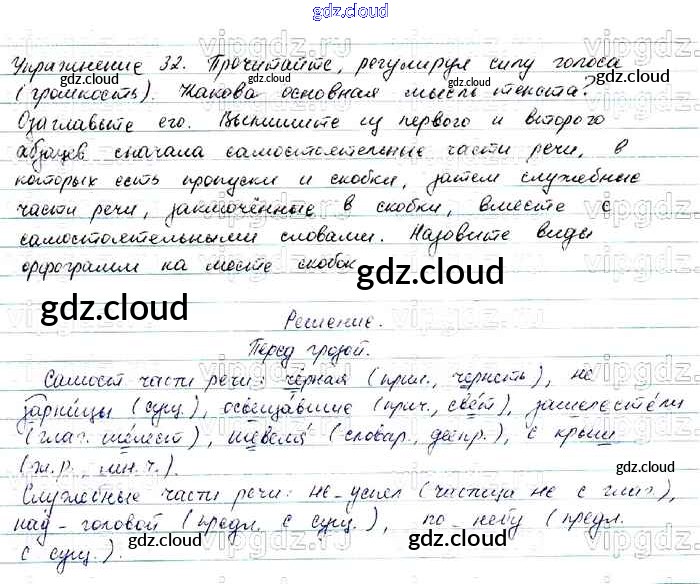 gdz.cloud
Упражнение 32. Прочитайте, регулируя силу голоса
(громкость). Какова основная мысль текста?
Озаглавьте его. Выпишите из первого и второго
абзацев сначала самостоятельные части речи, в
которых есть пропуски и скобки, затем служебные
части речи, заключённые в скобки, вместе с
самостоятельными словами. Назовите виды
орфограмм на месте скобок
gdz.cloud
gdz.cloud
Решение.
Перед грозой.
Самост части речи: чёрная (прил., чернеть), не
зарницы (сущ.), освещавшие (прич., свет), зашелестели
(глаг. шелест), шевеля (словар., деепр.), с крыш
(ж.р., мн.ч.).
Служебные части речи: не успел (частица не с глаг.),
над головой (предл. с сущ.), по небу (предл.
с сущ.).
gdz.cloud